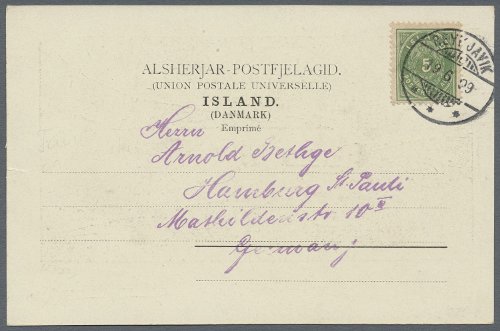 REYKJAVIK
5
9 6 09
ALSHERJAR-POSTFJELAGID.
(UNION POSTALE UNIVERSELLE)
ISLAND.
(DANMARK)
Emprimé
Herrn
Arnold Bethge
Hamburg St. Pauli
Mathildenstr 10 II
Germany